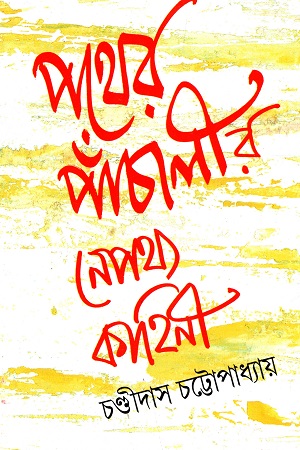 পথের
পাঁচালীর
নেপথ্য
কাহিনী
চণ্ডীদাস চট্টোপাধ্যায়